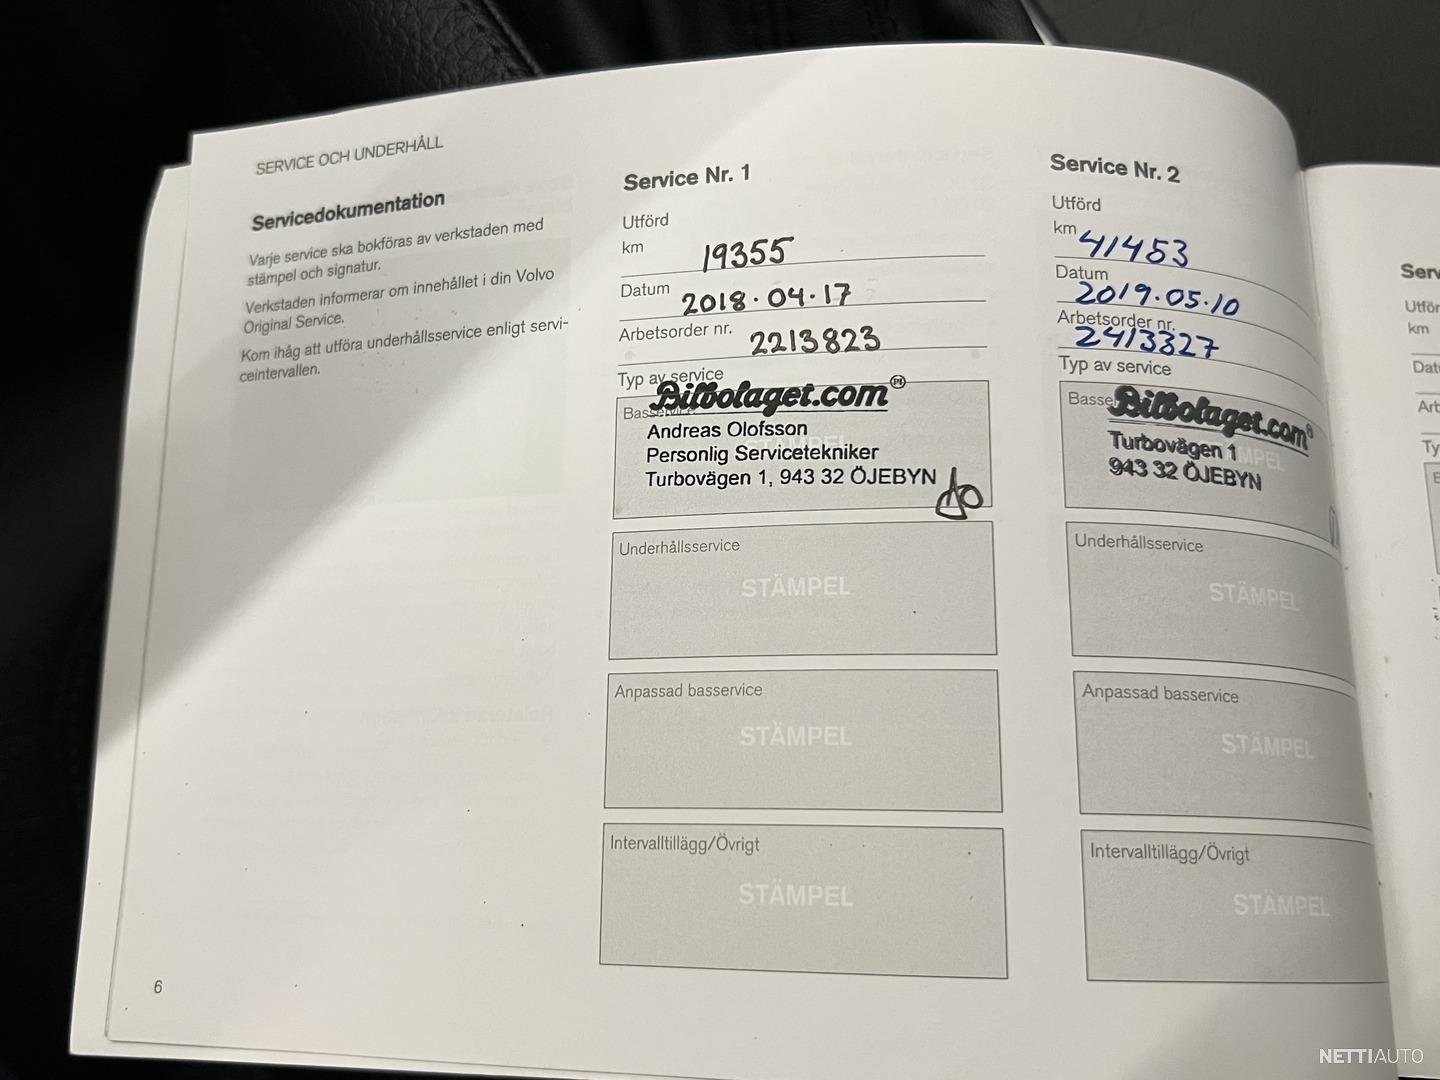 SERVICE OCH UNDERHÅLL
Servicedokumentation
Varje service ska bokföras av verkstaden med
stämpel och signatur.
Verkstaden informerar om innehållet i din Volvo
Original Service.
Kom ihåg att utföra underhållsservice enligt servi-
ceintervallen.
6
Service Nr. 1
Utförd
km 19355
Datum 2018.04.17
Arbetsorder nr. 2213823
Typ av service
Basservice
Bilbolaget.com
Andreas Olofsson
Personlig Servicetekniker
Turbovägen 1, 943 32 ÖJEBYN
Underhållsservice
STÄMPEL
Anpassad basservice
STÄMPEL
Intervalltillägg/Övrigt
STÄMPEL
Service Nr. 2
Utförd
km 41453
Datum
2019.05.10
Arbetsorder nr.
2413327
Typ av service
Basse
Bilbolaget.com
Turbovägen 1
943 32 ÖJEBYN
Underhållsservice
STÄMPEL
Anpassad basservice
STÄMPEL
Intervalltillägg/Övrigt
STÄMPEL
Serv
Utför
km
Dat
Art
Ty
NETTIAUTO